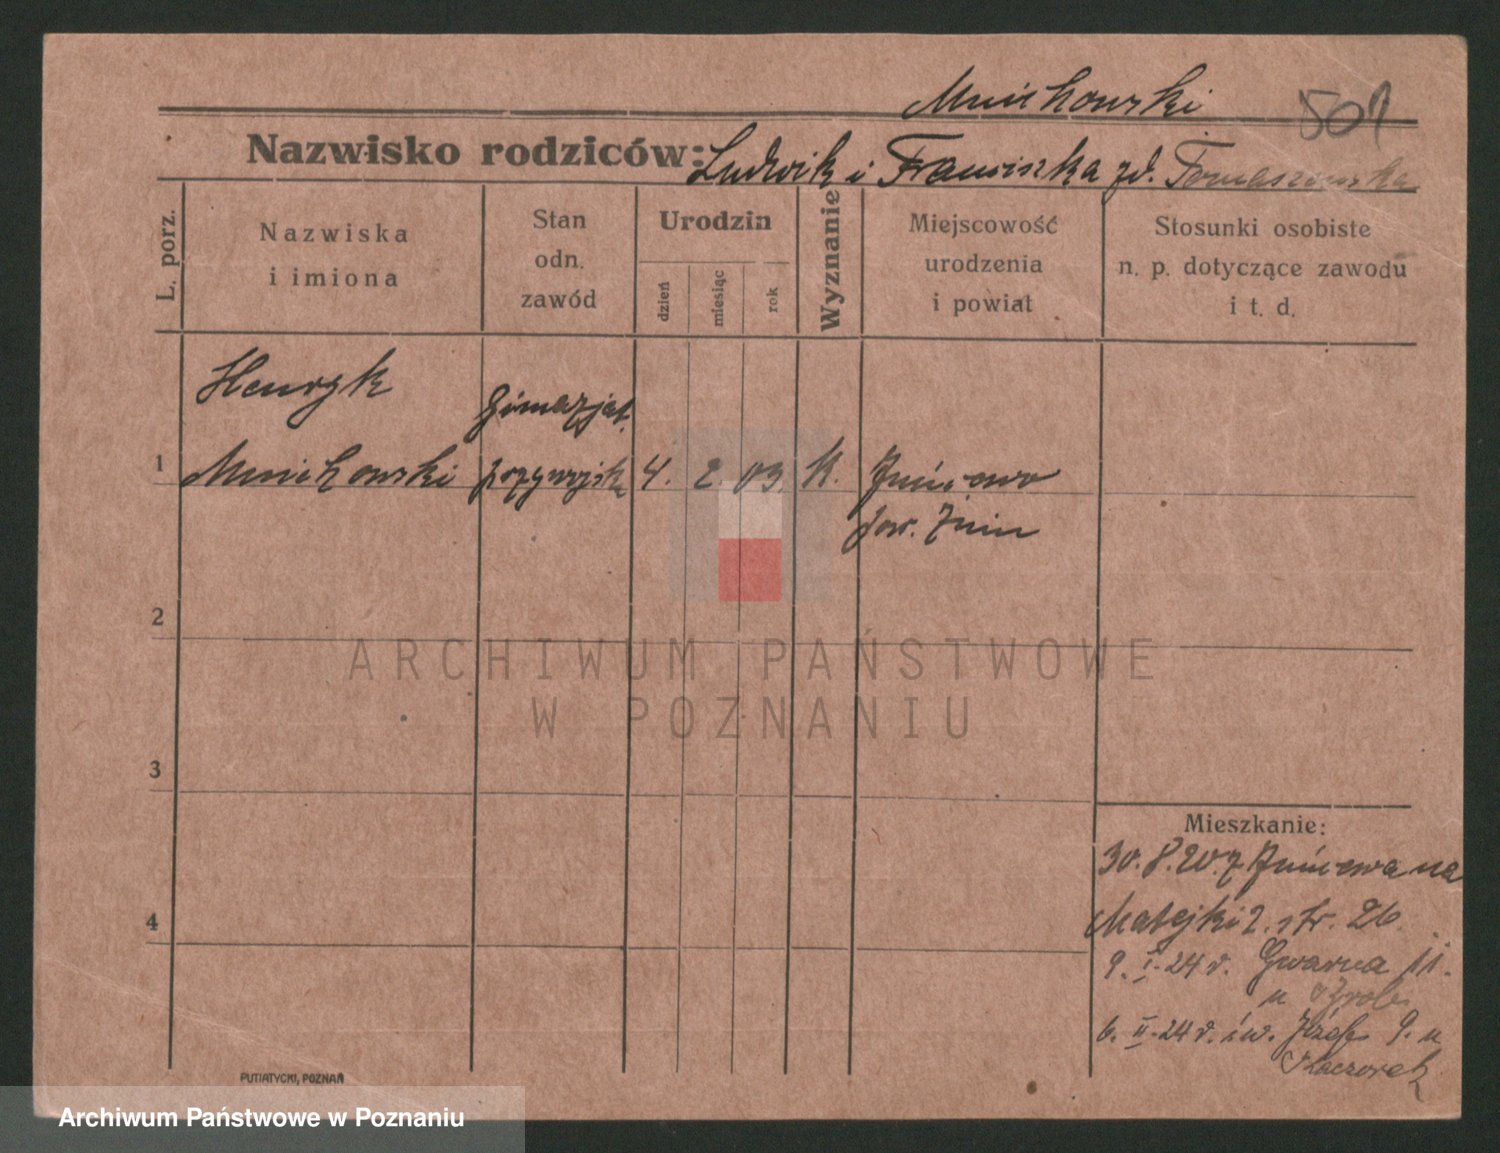 Mnichowski 501
Nazwisko rodziców: Ludwik i Franciszka zd. Tomaszewska
L. porz.
Nazwiska
i imiona
Stan
odn.
zawód
Urodzin
dzień
miesiąc
rok
Wyznanie
Miejscowość
urodzenia
i powiat
Stosunki osobiste
n. p. dotyczące zawodu
i t. d.
Henryk
Gimazjal.
1 Mnichowski 4. 2. 03. K. Żniniewo
pow. Żnin
2
ARCHIWUM PAŃSTWOWE
W POZNANIU
3
4
Mieszkanie:
30.8.20. z na
Matejki 2. str. 26.
9.I.24 r. Gwarna 11.
u
6.II.24 r. św. Józefa 9. u
Kaczorek
PUTIATYCKI, POZNAŃ
Archiwum Państwowe w Poznaniu